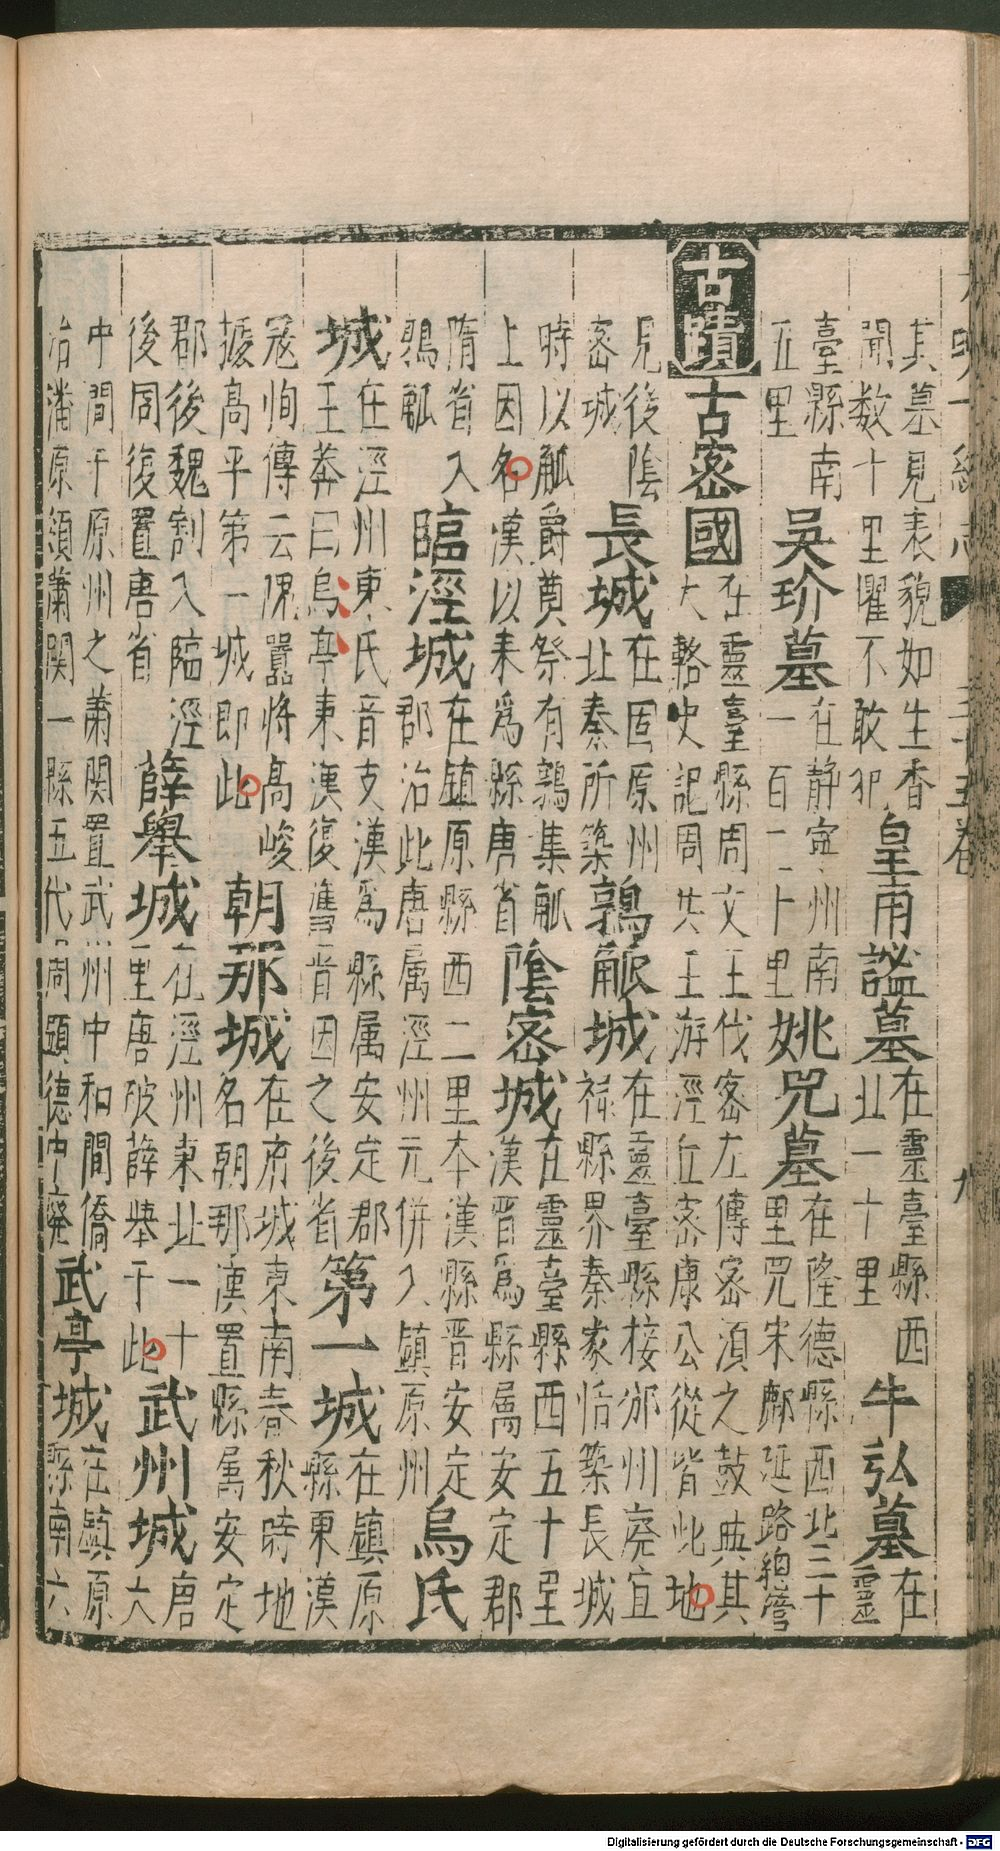 大明一統志 三十五卷 九
其墓見表貌如生香聞數十里懼不敢犯皇甫謐墓在靈臺縣西北一十里牛弘墓在靈
臺縣南五里吳玠墓在静寧州南一百二十里姚兕墓在隆德縣西北三十里兕宋鄜延路緫管
古蹟古密國在靈臺縣周文王伐密左傳密湏之鼓與其大輅史記周共王游涇丘密康公從皆此地
見後陰密城長城在固原州北秦所築鶉觚城在靈臺縣接邠州廃宜祿縣界秦家恬築長城
時以觚爵奠祭有鶉集觚上因名漢以来爲縣唐省陰密城在靈臺縣西五十里漢晋爲縣属安定郡
隋省入鶉觚臨涇城在鎮原縣西二里本漢縣晋安定郡治此唐属涇州元併入鎮原州烏氏
城在涇州東氏音支漢爲縣属安定郡王莽曰烏亭東漢復舊晋因之後省第一城在鎮原縣東漢
冦恂傳云隗囂將高峻㨿高平第一城即此朝那城在府城東南春秋時地名朝那漢置縣属安定
郡後魏割入臨涇後周復置唐省薛舉城在涇州東北一十里唐破薛舉于此武州城唐大
中間于原州之蕭関置武州中和間僑治潘原領蕭関一縣五代周顯德中廢武亭城在鎮原縣南六
Digitalisierung gefördert durch die Deutsche Forschungsgemeinschaft - DFG